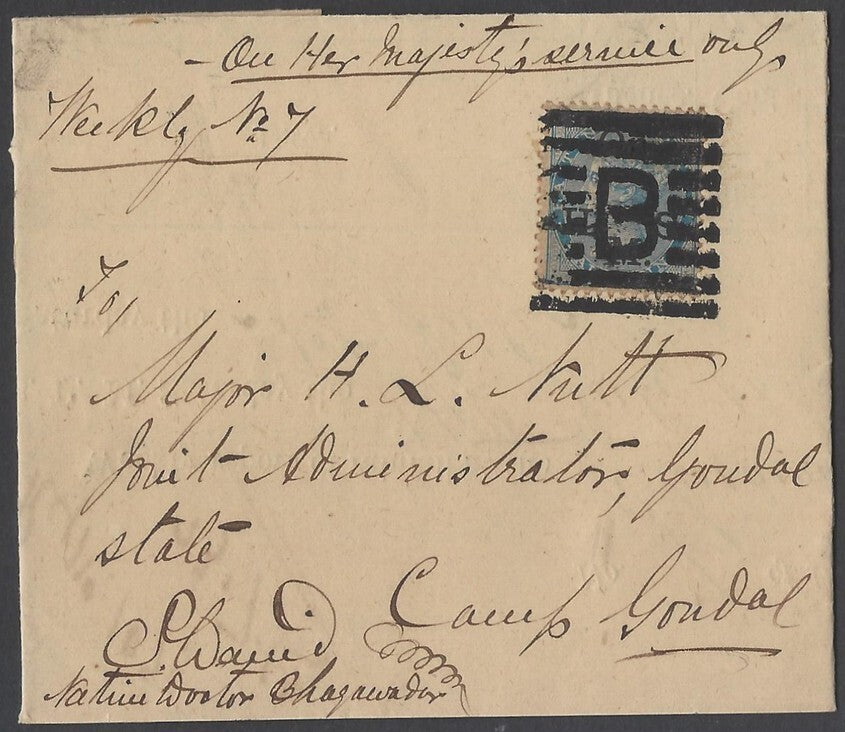 - On Her Majesty's service only
Weekly No 7
B
To/
Major H. L. Nutt
Joint Administrator, Gondal
state
Camp Gondal
S. David
Native Doctor Bhagawadar